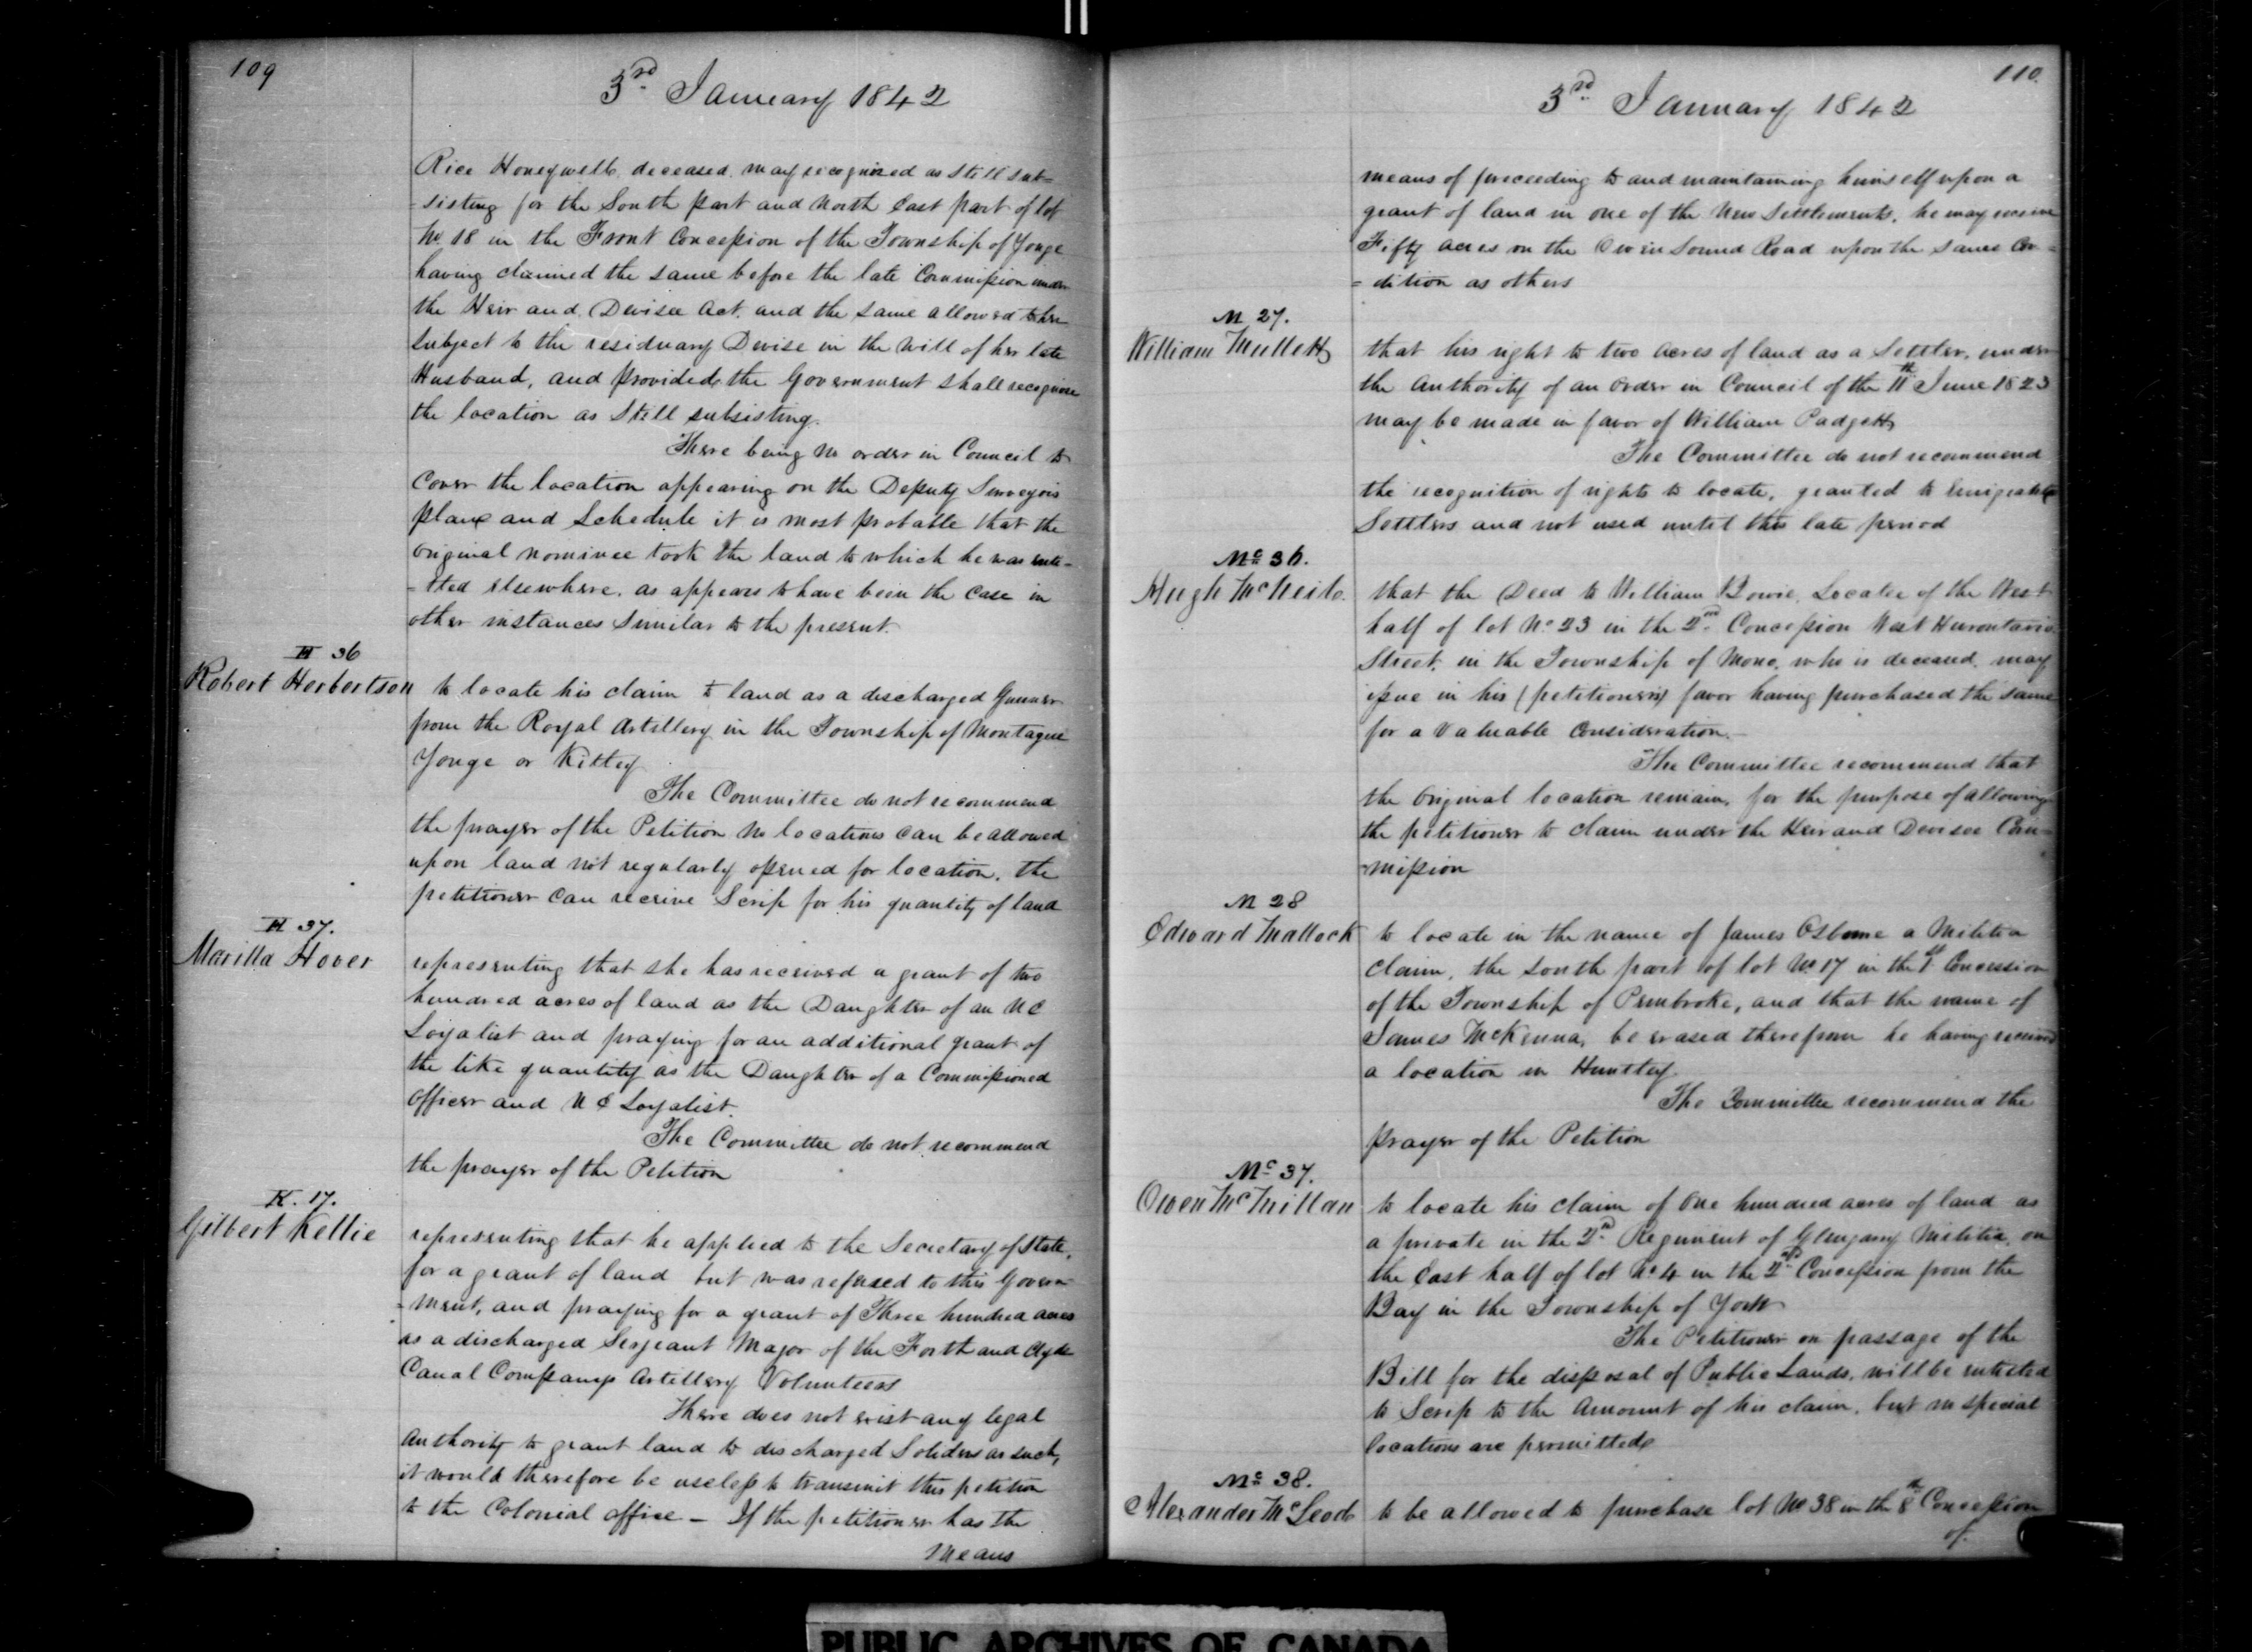 109
3rd January 1842
Rice Honeywell, deceased, may recognized as still sub=
=sisting for the South part and North East part of lot
No 18 in the Front Concession of the Township of Yonge
having claimed the same before the late Commission under
the Heir and Devisee Act, and the same allowed to her
subject to the residuary Devise in the Will of her late
Husband, and provided the Government shall recognise
the location as still subsisting.
There being no order in Council to
Cover the location appearing on the Deputy Surveyors
plan and Schedule it is most probable that the
original nominee took the land to which he was enti-
=tled elsewhere, as appears to have been the case in
other instances similar to the present.
H 36
Robert Herbertson
to locate his claim to land as a discharged Gunner
from the Royal Artillery in the Township of Montague
Yonge or Kitley
The Committee do not recommend
the prayer of the Petition No locations can be allowed
upon land not regularly opened for location, the
petitioner can receive Scrip for his quantity of land
H 37.
Marilla Hover
representing that she has received a grant of two
hundred acres of land as the Daughter of an U E
Loyalist and praying for an additional grant of
the like quantity as the Daughter of a Commissioned
officer and U E Loyalist.
The Committee do not recommend
the prayer of the Petition
K. 17.
Gilbert Kellie
representing that he applied to the Secretary of State,
for a grant of land but was refused to this Govern-
=ment, and praying for a grant of Three hundred acres
as a discharged Serjeant Major of the Forth and Clyde
Canal Company Artillery Volunteers
There does not exist any legal
authority to grant land to discharged Soldiers as such,
it would therefore be useless to transmit this petition
to the Colonial office – If the petitioner has the
means
110.
3rd January 1842
means of proceeding to and maintaining himself upon a
grant of land in one of the New Settlements, he may receive
Fifty acres on the Owen Sound Road upon the same Con=
=dition as others
M 27.
William Mullett
that his right to two acres of land as a Settler, under
the authority of an order in Council of the 11th June 1823
may be made in favor of William Padgett
The Committee do not recommend
the recognition of rights to locate, granted to Emigrants
Settlers and not used until this late period
Mc 36.
Hugh McNeil
that the Deed to William Bowie, Locatee of the West
half of lot No 23 in the 2nd Concession West Hurontario
Street, in the Township of Mono, who is deceased, may
issue in his (petitioners) favor having purchased the same
for a valuable consideration.—
The Committee recommend that
the original location remain, for the purpose of allowing
the petitioner to claim under the Heir and Devisee Com-
=mission
M 28
Edward Mallock
to locate in the name of James Osborne a Militia
claim, the South part of lot No 17 in the 1st Concession
of the Township of Pembroke, and that the name of
James McKenna, be erased therefrom he having received
a location in Huntley
The Committee recommend the
prayer of the Petition
Mc 37.
Owen McMillan
to locate his claim of One hundred acres of land as
a private in the 2nd Regiment of Glengarry Militia, on
the East half of lot No 4 in the 2nd Concession from the
Bay in the Township of York
The Petitioner on passage of the
Bill for the disposal of Public Lands, will be entitled
to Scrip to the Amount of his claim, but no special
locations are permitted
Mc 38.
Alexander McLeod
to be allowed to purchase lot No 38 in the 8th Concession
of.
PUBLIC ARCHIVES OF CANADA